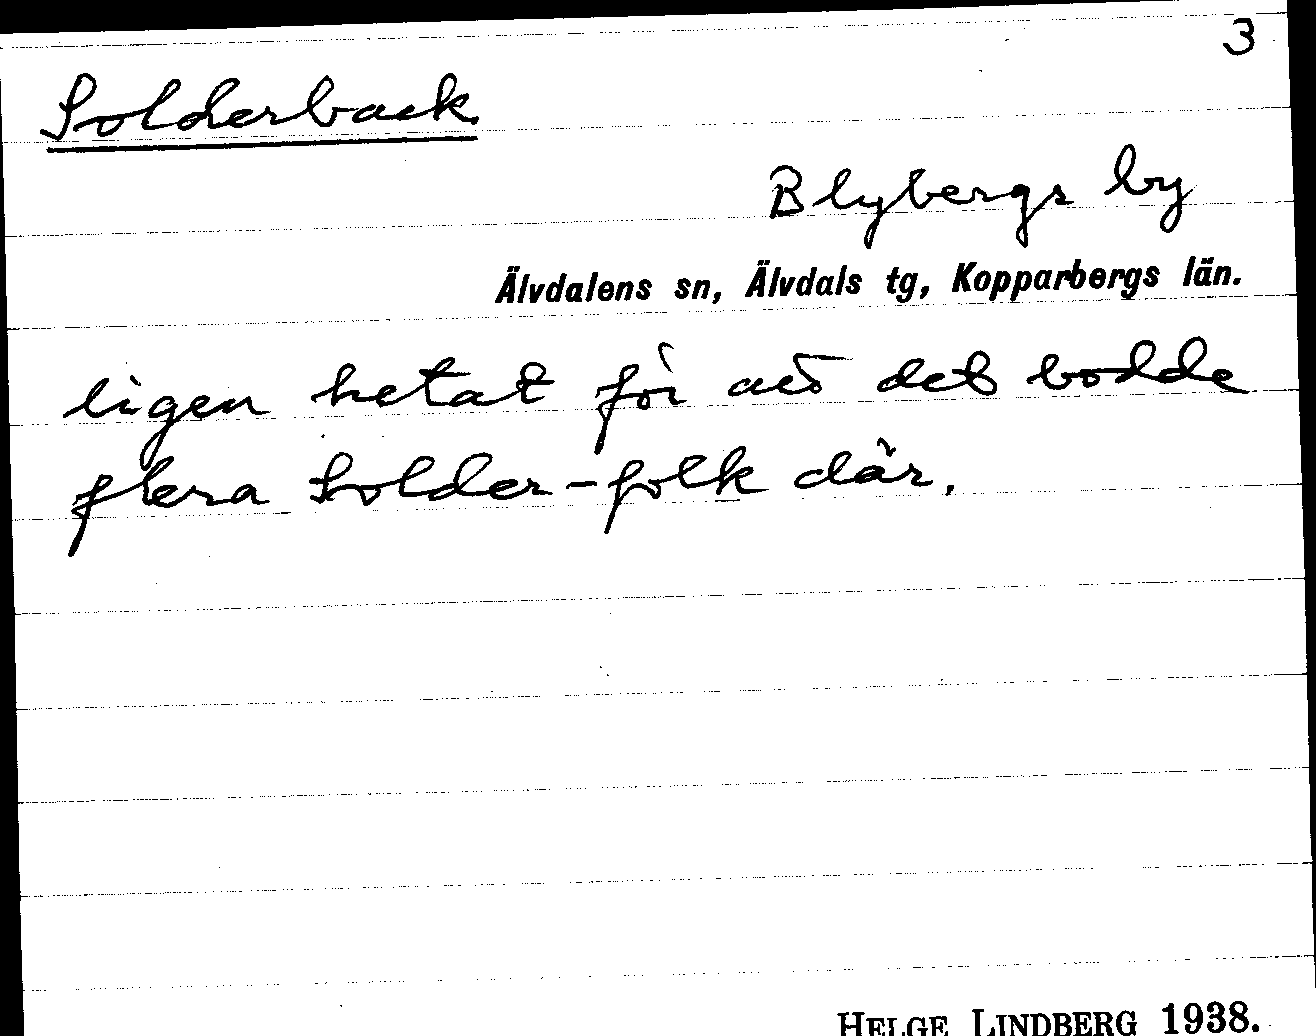 3
Solderback
Blybergs by
Älvdalens sn, Älvdals tg, Kopparbergs län.
ligen hetat för att det bodde
flera Solder-folk där.
HELGE LINDBERG 1938.